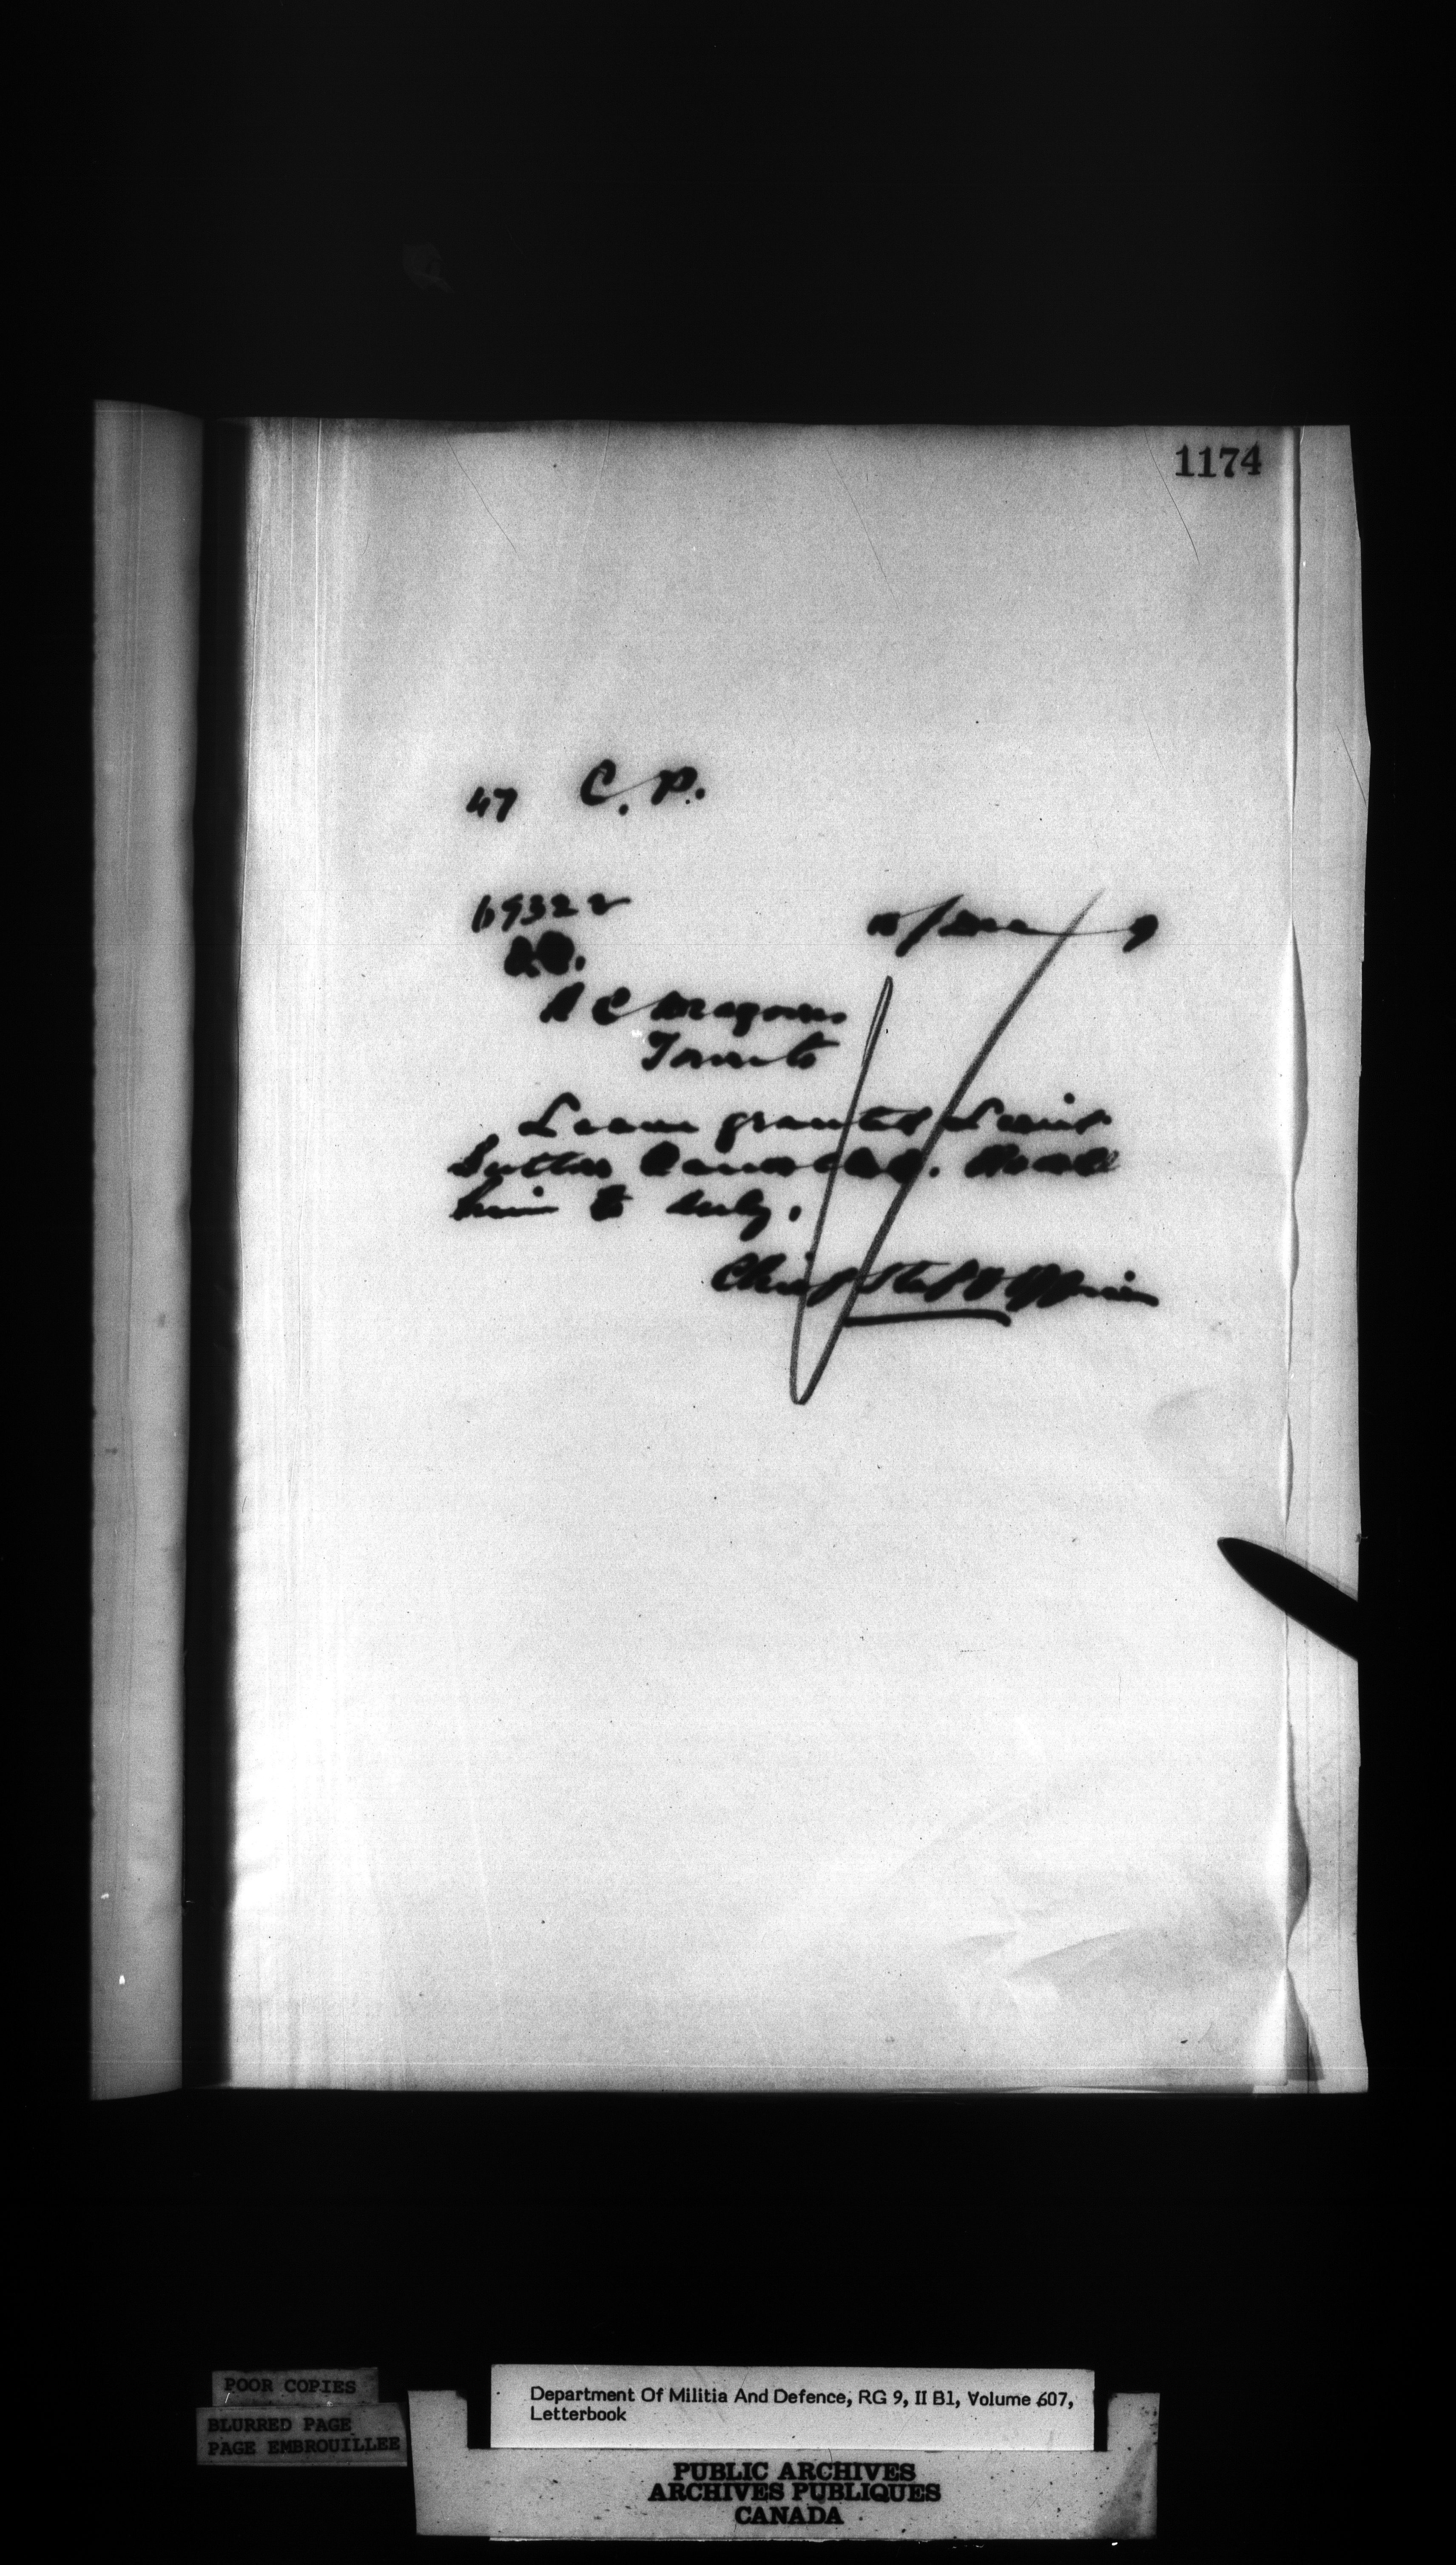 1174
47 C. P.
69322
/Dec 9
R C Dragoons
Toronto
Leave granted Lieut
Sutton Cancelled. Recall
him to duty.
Chief Staff Officer
POOR COPIES
BLURRED PAGE
PAGE EMBROUILLEE
Department Of Militia And Defence, RG 9, II B1, Volume 607,
Letterbook
PUBLIC ARCHIVES
ARCHIVES PUBLIQUES
CANADA